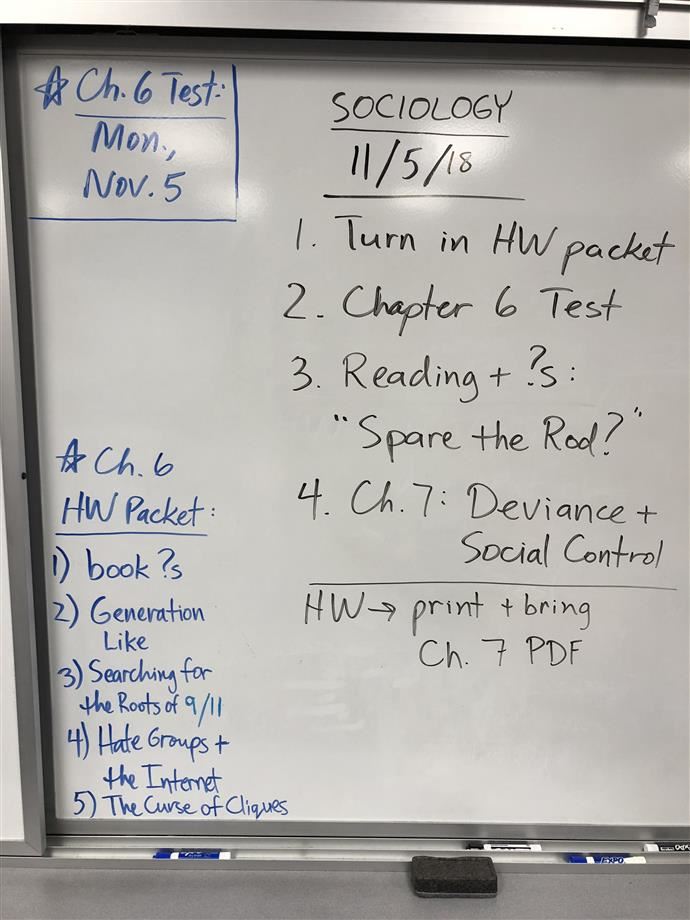 ☆ Ch. 6 Test:
Mon.,
Nov. 5
SOCIOLOGY
11/5/18
1. Turn in HW packet
2. Chapter 6 Test
3. Reading + ?s:
"Spare the Rod?"
4. Ch. 7: Deviance +
Social Control
HW → print + bring
Ch. 7 PDF
☆ Ch. 6
HW Packet:
1) book ?s
2) Generation
Like
3) Searching for
the Roots of 9/11
4) Hate Groups +
the Internet
5) The Curse of Cliques
EXPO